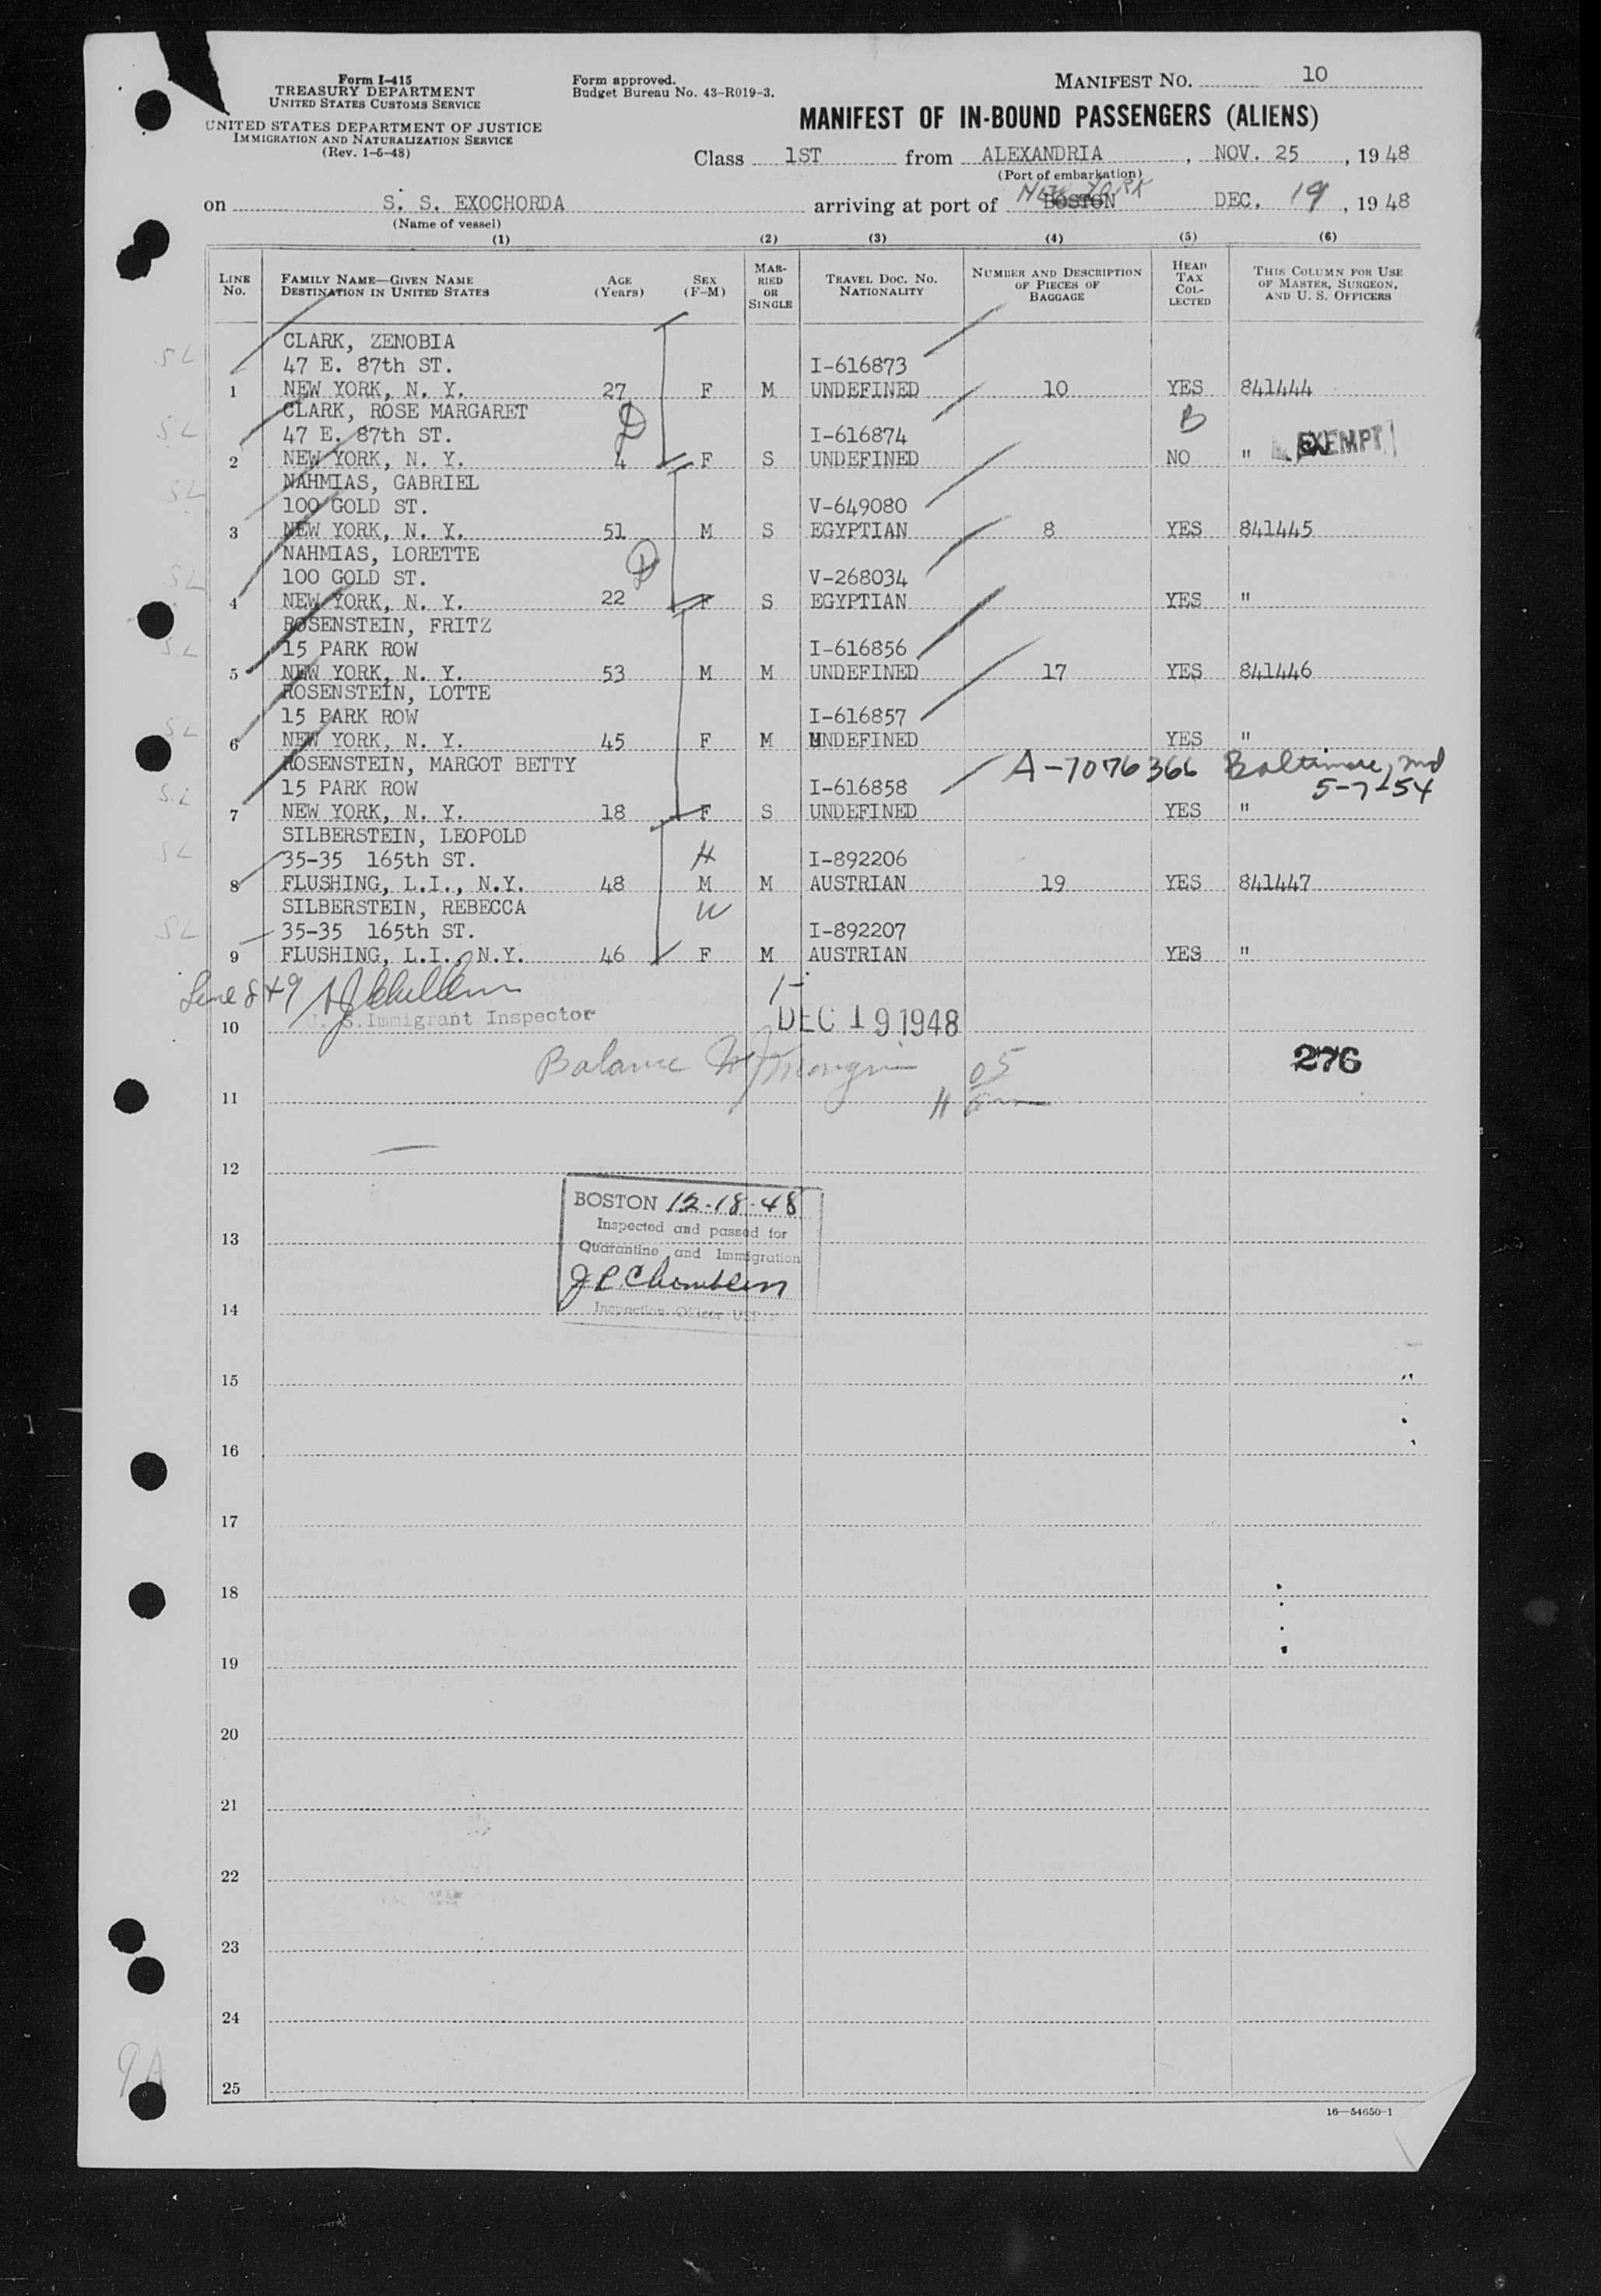 Form I-415
TREASURY DEPARTMENT
UNITED STATES CUSTOMS SERVICE
UNITED STATES DEPARTMENT OF JUSTICE
IMMIGRATION AND NATURALIZATION SERVICE
(Rev. 1-5-48)
Form approved.
Budget Bureau No. 43-R019-3.
MANIFEST NO. 10
MANIFEST OF IN-BOUND PASSENGERS (ALIENS)
Class 1ST from ALEXANDRIA, NOV. 25, 1948
(Port of embarkation)
NEW YORK
on S. S. EXOCHORDA arriving at port of BOSTON DEC. 19, 1948
(Name of vessel)
(1) (2) (3) (4) (5) (6)
LINE No. FAMILY NAME—GIVEN NAME DESTINATION IN UNITED STATES AGE (Years) SEX (F-M) MARRIED OR SINGLE TRAVEL DOC. NO. NATIONALITY NUMBER AND DESCRIPTION OF PIECES OF BAGGAGE HEAD TAX COLLECTED THIS COLUMN FOR USE OF MASTER, SURGEON, AND U. S. OFFICERS
CLARK, ZENOBIA
SL 47 E. 87th ST. I-616873
1 NEW YORK, N. Y. 27 F M UNDEFINED 10 YES 841444
CLARK, ROSE MARGARET B
SL 47 E. 87th ST. I-616874
2 NEW YORK, N. Y. 4 F S UNDEFINED NO " EXEMPT
NAHMIAS, GABRIEL
SL 100 GOLD ST. V-649080
3 NEW YORK, N. Y. 51 M S EGYPTIAN 8 YES 841445
NAHMIAS, LORETTE
SL 100 GOLD ST. V-268034
4 NEW YORK, N. Y. 22 F S EGYPTIAN YES "
ROSENSTEIN, FRITZ
SL 15 PARK ROW I-616856
5 NEW YORK, N. Y. 53 M M UNDEFINED 17 YES 841446
ROSENSTEIN, LOTTE
SL 15 PARK ROW I-616857
6 NEW YORK, N. Y. 45 F M UNDEFINED YES "
ROSENSTEIN, MARGOT BETTY A-7076366 Baltimore, Md
SL 15 PARK ROW I-616858 5-7-54
7 NEW YORK, N. Y. 18 F S UNDEFINED YES "
SILBERSTEIN, LEOPOLD
SL 35-35 165th ST. H I-892206
8 FLUSHING, L.I., N.Y. 48 M M AUSTRIAN 19 YES 841447
SILBERSTEIN, REBECCA W
SL 35-35 165th ST. I-892207
9 FLUSHING, L.I., N.Y. 46 F M AUSTRIAN YES "
Line 8 & 9
U. S. Immigrant Inspector
10 DEC 19 1948
Balance 276
11
12
BOSTON 12-18-48
Inspected and passed for
13
Quarantine and Immigration
14
Inspection Officer
15
16
17
18
19
20
21
22
23
24
9A
25
16—54650-1